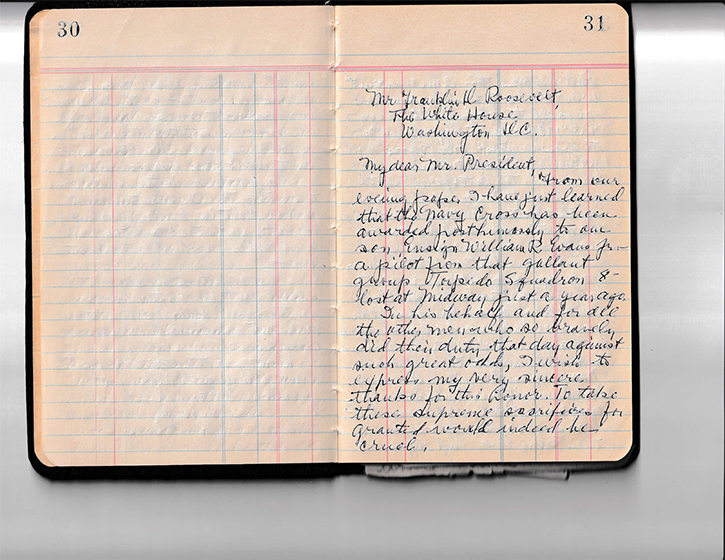 30
31
Mr Franklin D. Roosevelt,
The White House,
Washington D.C.
My dear Mr. President,
From our
evening paper, I have just learned
that the Navy Cross has been
awarded posthumously to our
son, Ensign William R. Evans Jr-
a pilot from that gallant
group, Torpedo Squadron 8-
lost at Midway just a year ago.
In his behalf and for all
the other men who so bravely
did their duty that day against
such great odds, I wish to
express my very sincere
thanks for this honor. To take
these supreme sacrifices for
granted would indeed be
cruel.